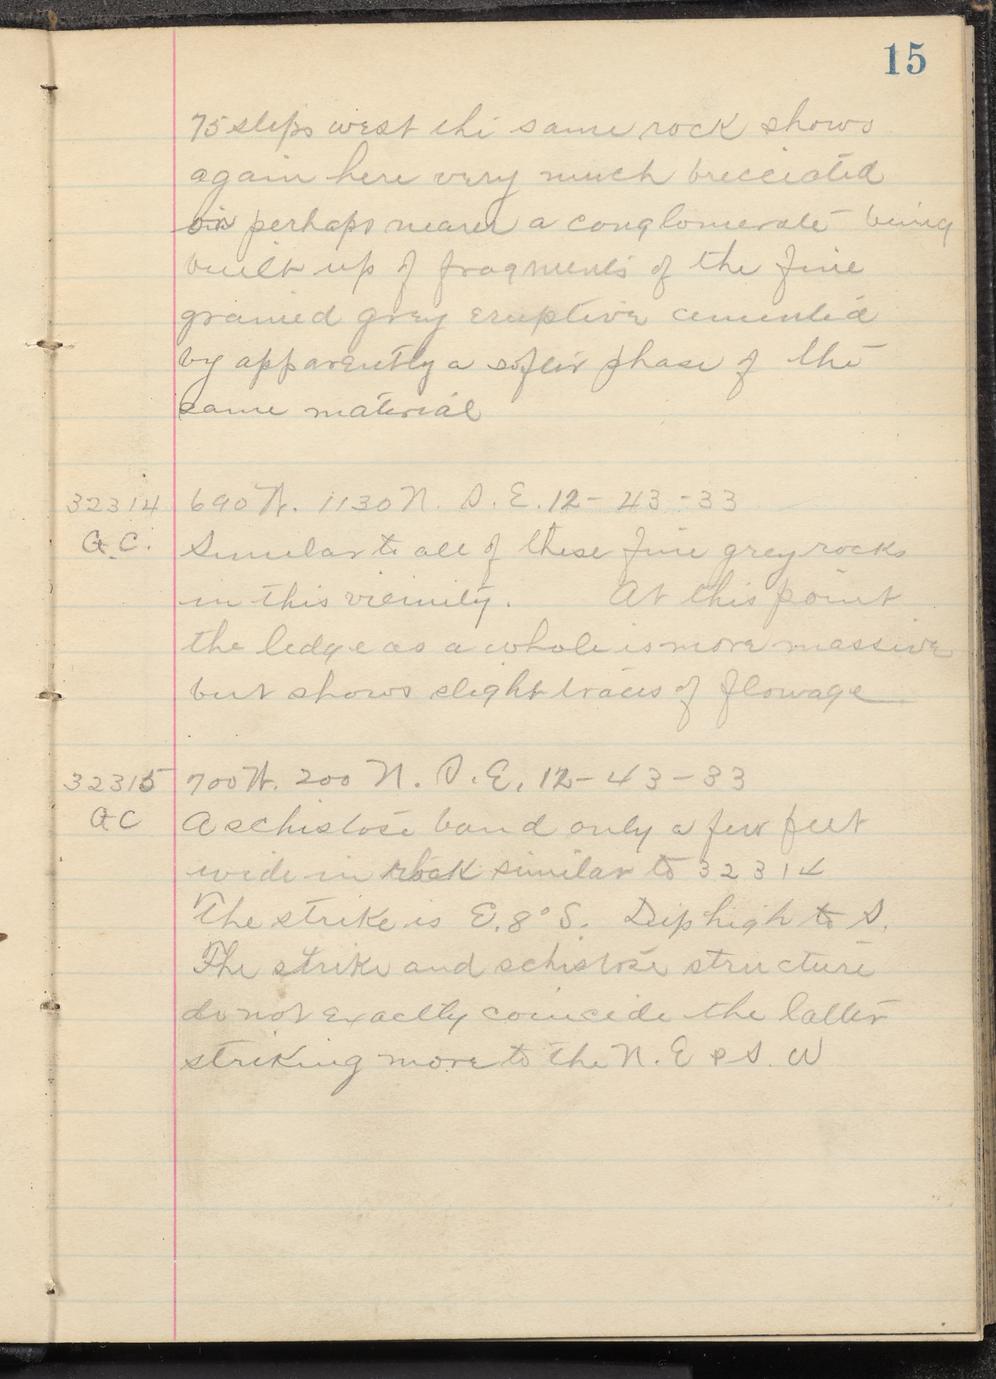 15
75 steps west the same rock shows
again here very much brecciated
or perhaps nearer a conglomerate being
built up of fragments of the fine
grained grey eruptive cemented
by apparently a softer phase of the
same material
32314 690 W. 1130 N. S.E. 12-43-33
G.C. Similar to all of these fine grey rocks
in this vicinity. At this point
the ledge as a whole is more massive
but shows slight traces of flowage
32315 700 W. 200 N. S.E. 12-43-33
GC A schistose band only a few feet
wide in rock similar to 32314
The strike is E. 8° S. Dip high to S.
The strike and schistose structure
do not exactly coincide the latter
striking more to the N.E & S.W